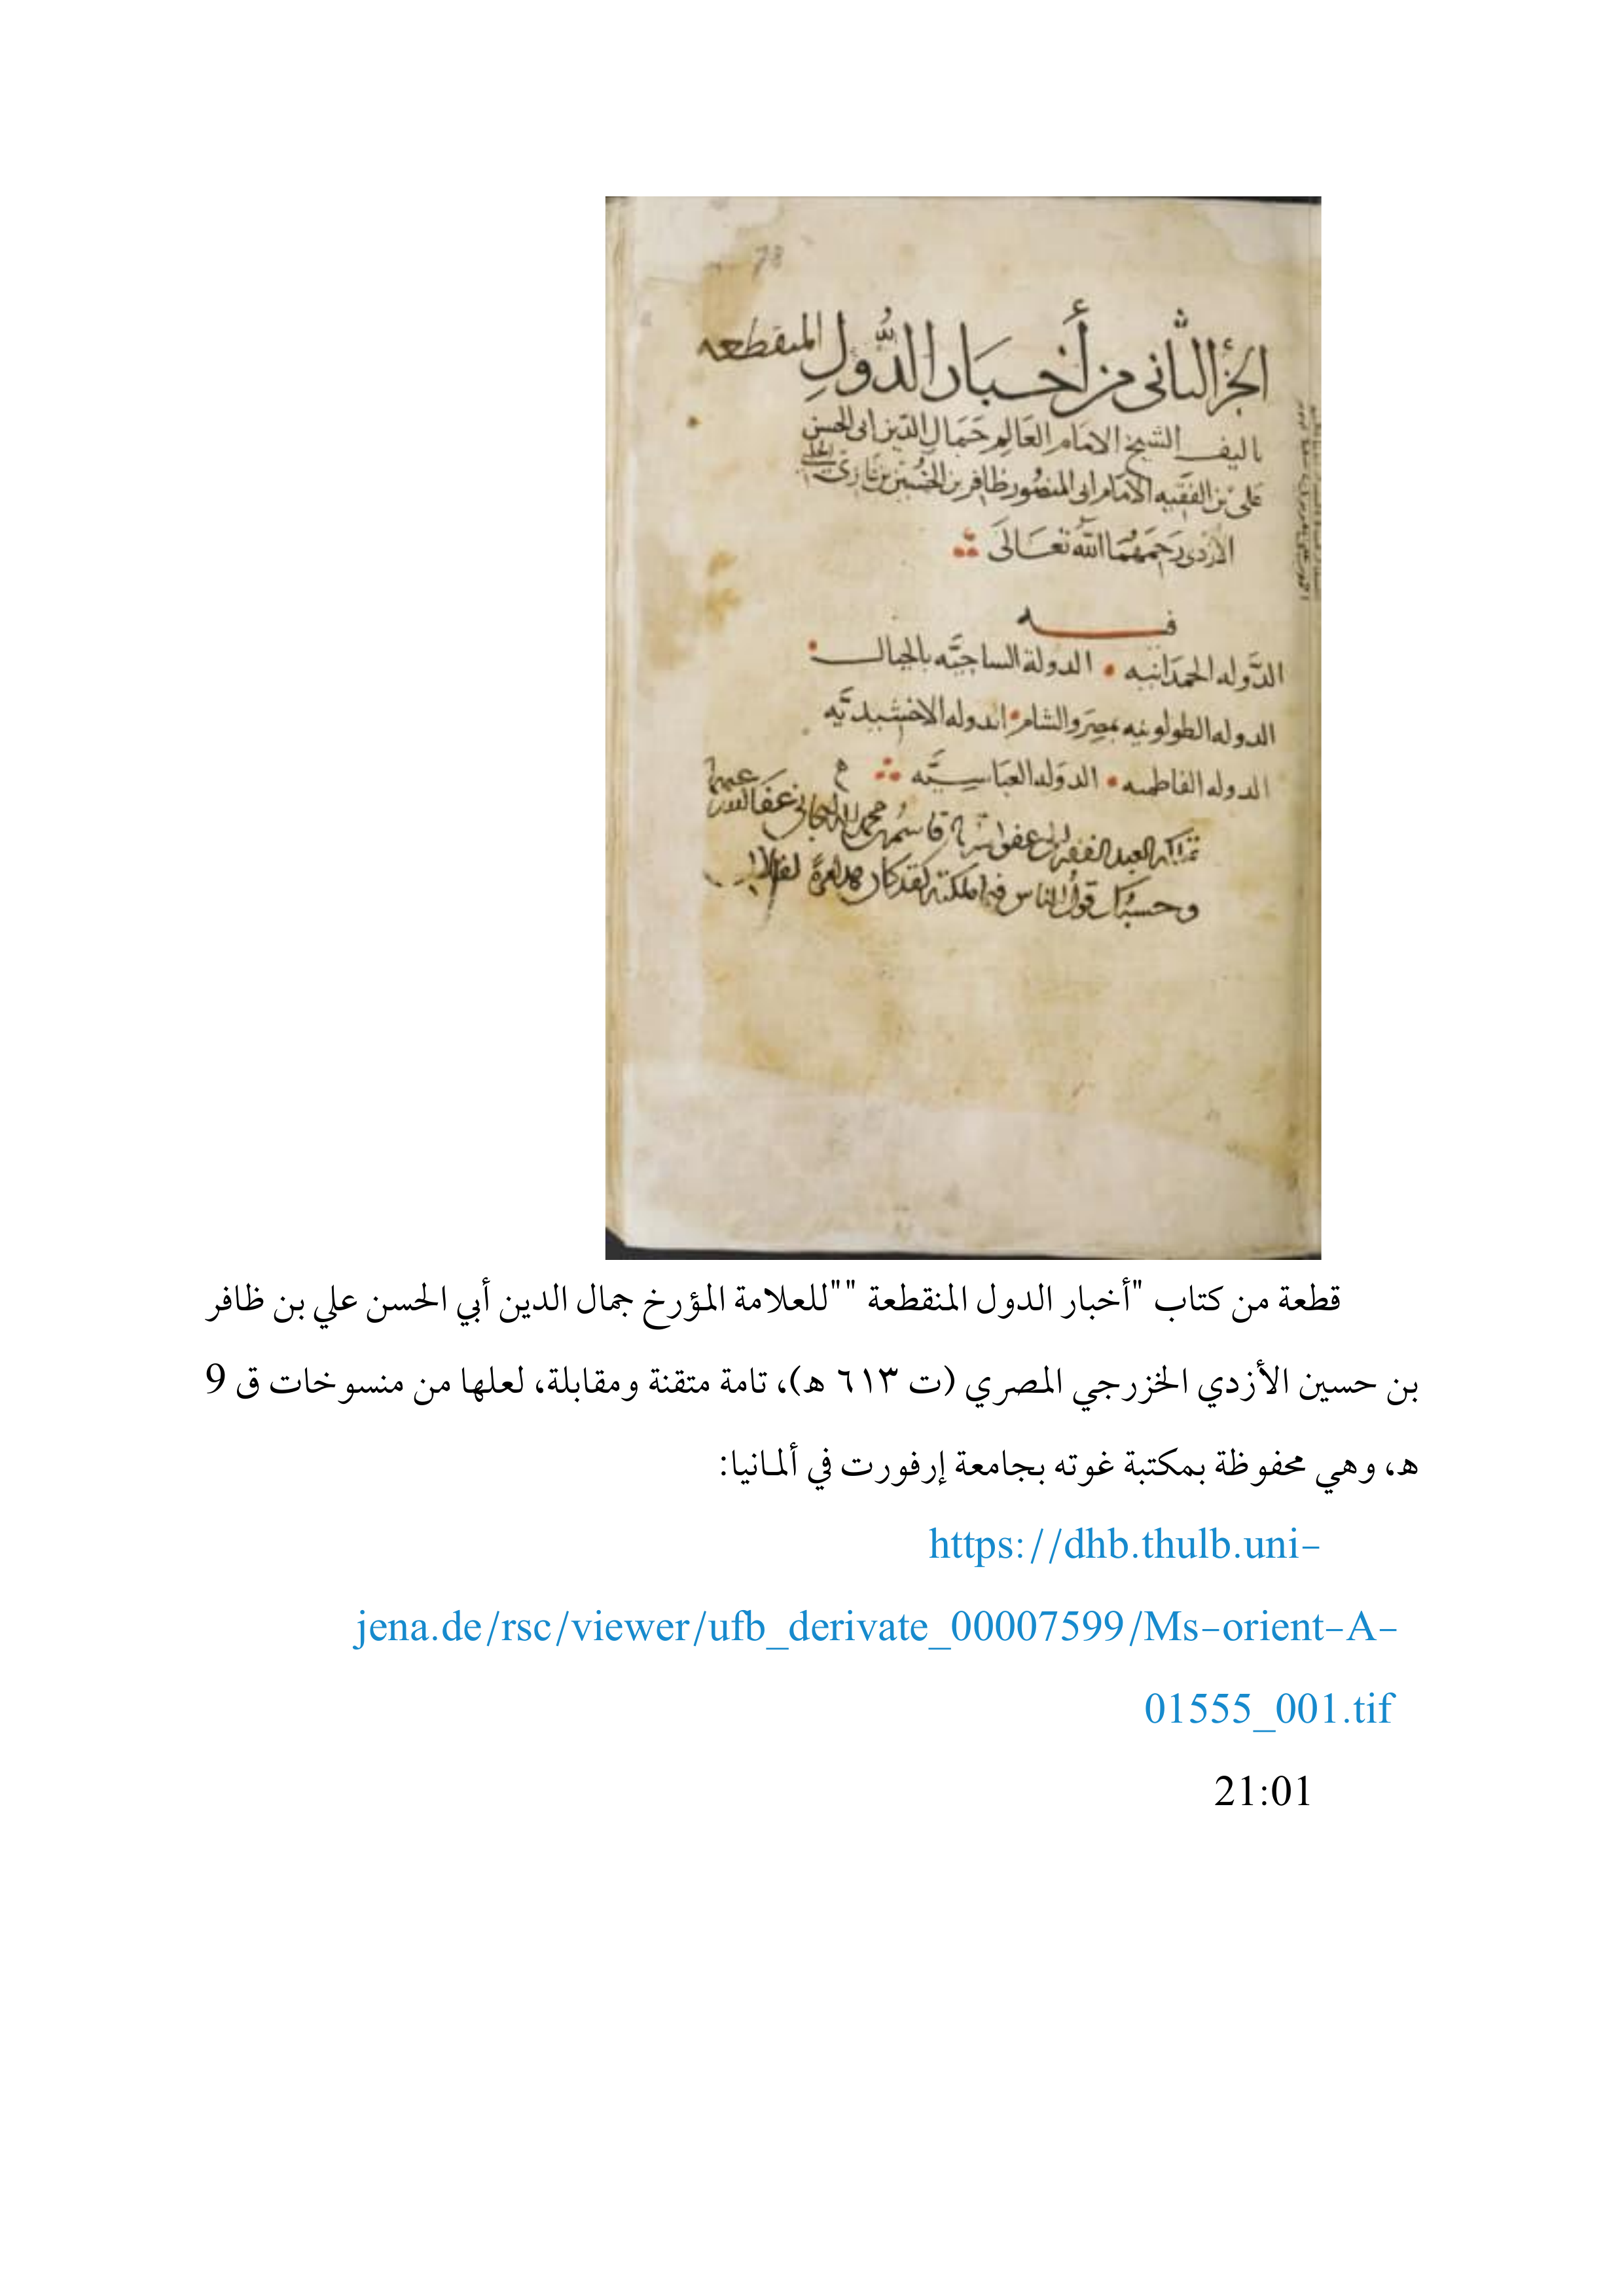 78
الجزؤ الثانى من أخبار الدُّولِ المنقطعه
تاليف الشيخ الامَام العَالِم جَمَال الدّين ابى الحسن
على بن الفقيه الامَام ابى المنصُور ظافر بن الحُسَين بن غازى
الازدى رَحِمَهُمَا اللهُ تعَالَى
فيه
الدَّوله الحمدَانيه • الدولة الساجيَّه بالجبال
الدوله الطولونيه بمصرَ والشام • الدوله الاخشيديَّه
الدوله الفاطميه • الدوَله العبَاسيَّه
العبد الفقير الى عفو قاسم بن محمد عفا
وحسبك قول الناس فيما ملكته لقد كان هذا مرةً لفلان
قطعة من كتاب "أخبار الدول المنقطعة ""للعلامة المؤرخ جمال الدين أبي الحسن علي بن ظافر
بن حسين الأزدي الخزرجي المصري (ت ٦١٣ هـ)، تامة متقنة ومقابلة، لعلها من منسوخات ق 9
هـ، وهي محفوظة بمكتبة غوته بجامعة إرفورت في ألمانيا:
https://dhb.thulb.uni-
jena.de/rsc/viewer/ufb_derivate_00007599/Ms-orient-A-
01555_001.tif
21:01